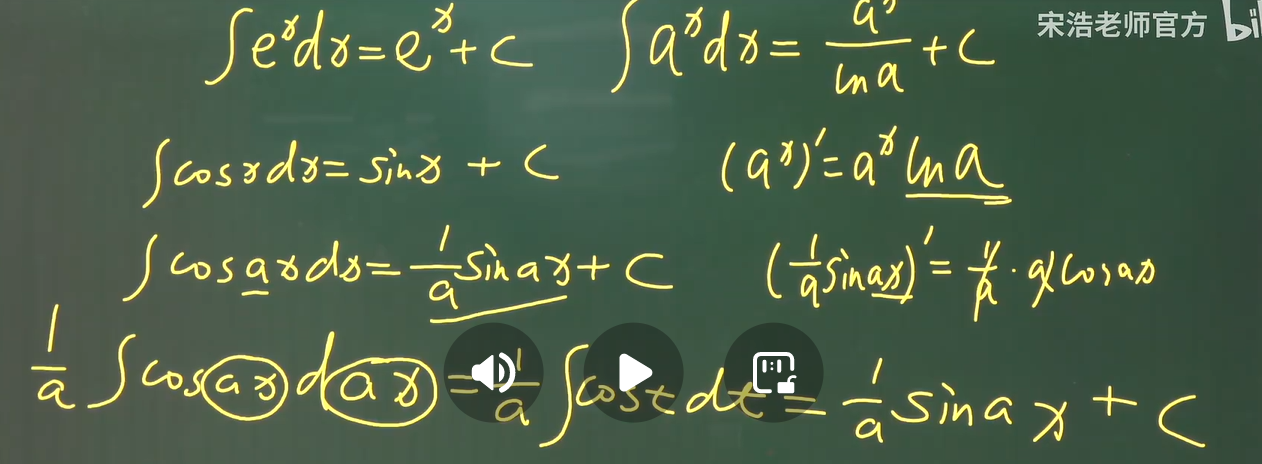 宋浩老师官方 bili
∫e^x dx = e^x + C ∫a^x dx = a^x/ln a + C
∫cos x dx = sin x + C (a^x)' = a^x ln a
∫cos ax dx = 1/a sin ax + C (1/a sin ax)' = 1/a · a cos ax
1/a ∫cos ax d ax = 1/a ∫cos t dt = 1/a sin a x + C